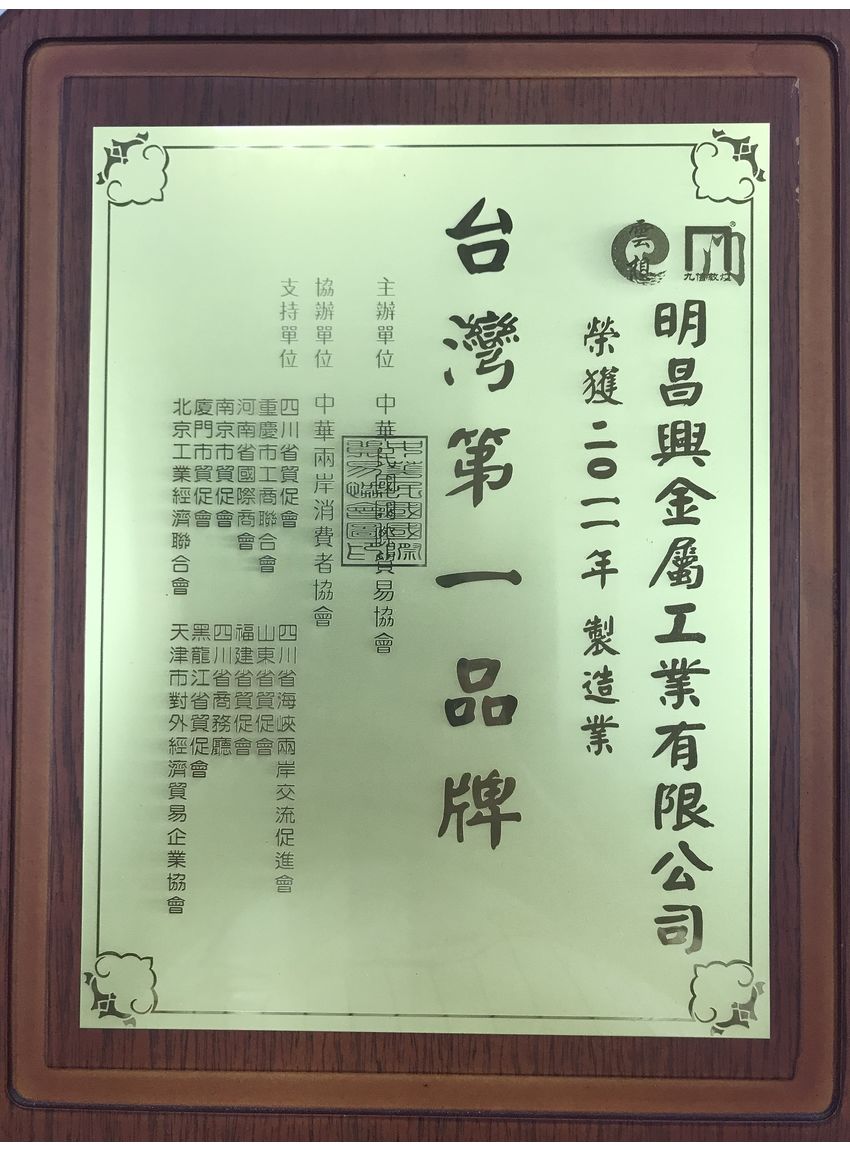 雲鶴
九信敦煌
明昌興金屬工業有限公司
榮獲二○一一年製造業
台灣第一品牌
主辦單位 中華民國國際貿易協會
協辦單位 中華兩岸消費者協會
支持單位 四川省貿促會 四川省海峽兩岸交流促進會
重慶市工商聯合會 山東省貿促會
河南省國際商會 福建省貿促會
南京市貿促會 四川省商務廳
廈門市貿促會 黑龍江省貿促會
北京工業經濟聯合會 天津市對外經濟貿易企業協會